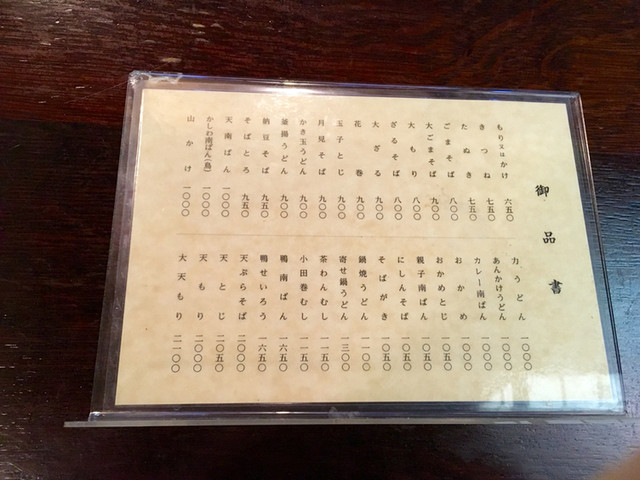 御品書
もり又はかけ 六五〇
きつね 七五〇
たぬき 七五〇
ごまそば 八〇〇
大ごまそば 九〇〇
大もり 八〇〇
ざるそば 八〇〇
大ざる 九〇〇
花巻 九〇〇
玉子とじ 九〇〇
月見そば 九〇〇
かき玉うどん 九〇〇
釜揚うどん 九〇〇
納豆そば 九五〇
そばとろ 九五〇
天南ばん 一〇〇〇
かしわ南ばん(鳥) 一〇〇〇
山かけ 一〇〇〇
力うどん 一〇〇〇
あんかけうどん 一〇〇〇
カレー南ばん 一〇〇〇
おかめ 一〇〇〇
おかめとじ 一〇五〇
親子南ばん 一〇五〇
にしんそば 一〇五〇
そばがき 一〇五〇
鍋焼うどん 一一〇〇
寄せ鍋うどん 一三〇〇
茶わんむし 一一五〇
小田巻むし 一一五〇
鴨南ばん 一六五〇
鴨せいろう 一六五〇
天ぷらそば 二〇〇〇
天とじ 二〇五〇
天もり 二〇〇〇
大天もり 二一〇〇